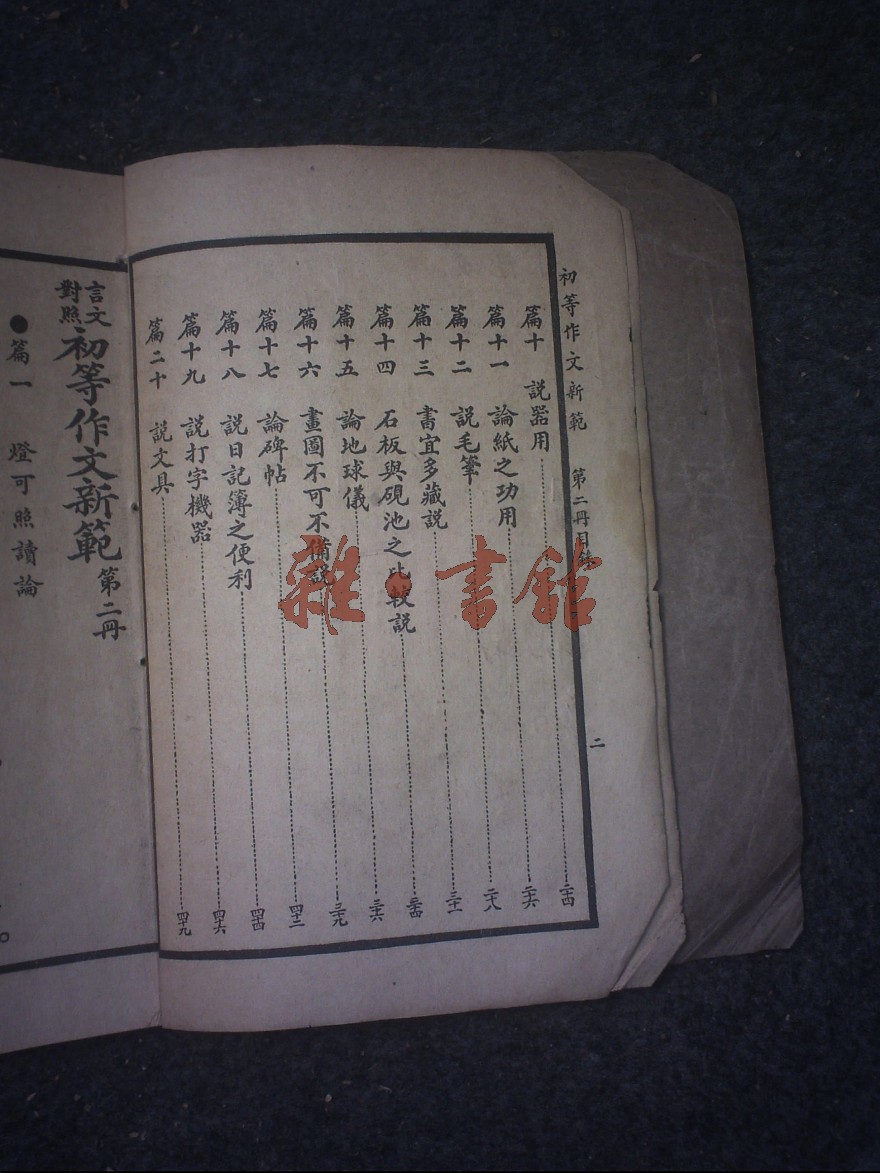 初等作文新範 第二冊目錄 二
篇十 說器用 二十四
篇十一 論紙之功用 二十六
篇十二 說毛筆 二十八
篇十三 書宜多藏說 三十一
篇十四 石板與硯池之比較說 三十四
篇十五 論地球儀 三十六
篇十六 畫圖不可不備說 三十九
篇十七 論碑帖 四十二
篇十八 說日記簿之便利 四十四
篇十九 說打字機器 四十六
篇二十 說文具 四十九
言文對照 初等作文新範 第二冊
●篇一 燈可照讀論
雜·書舘